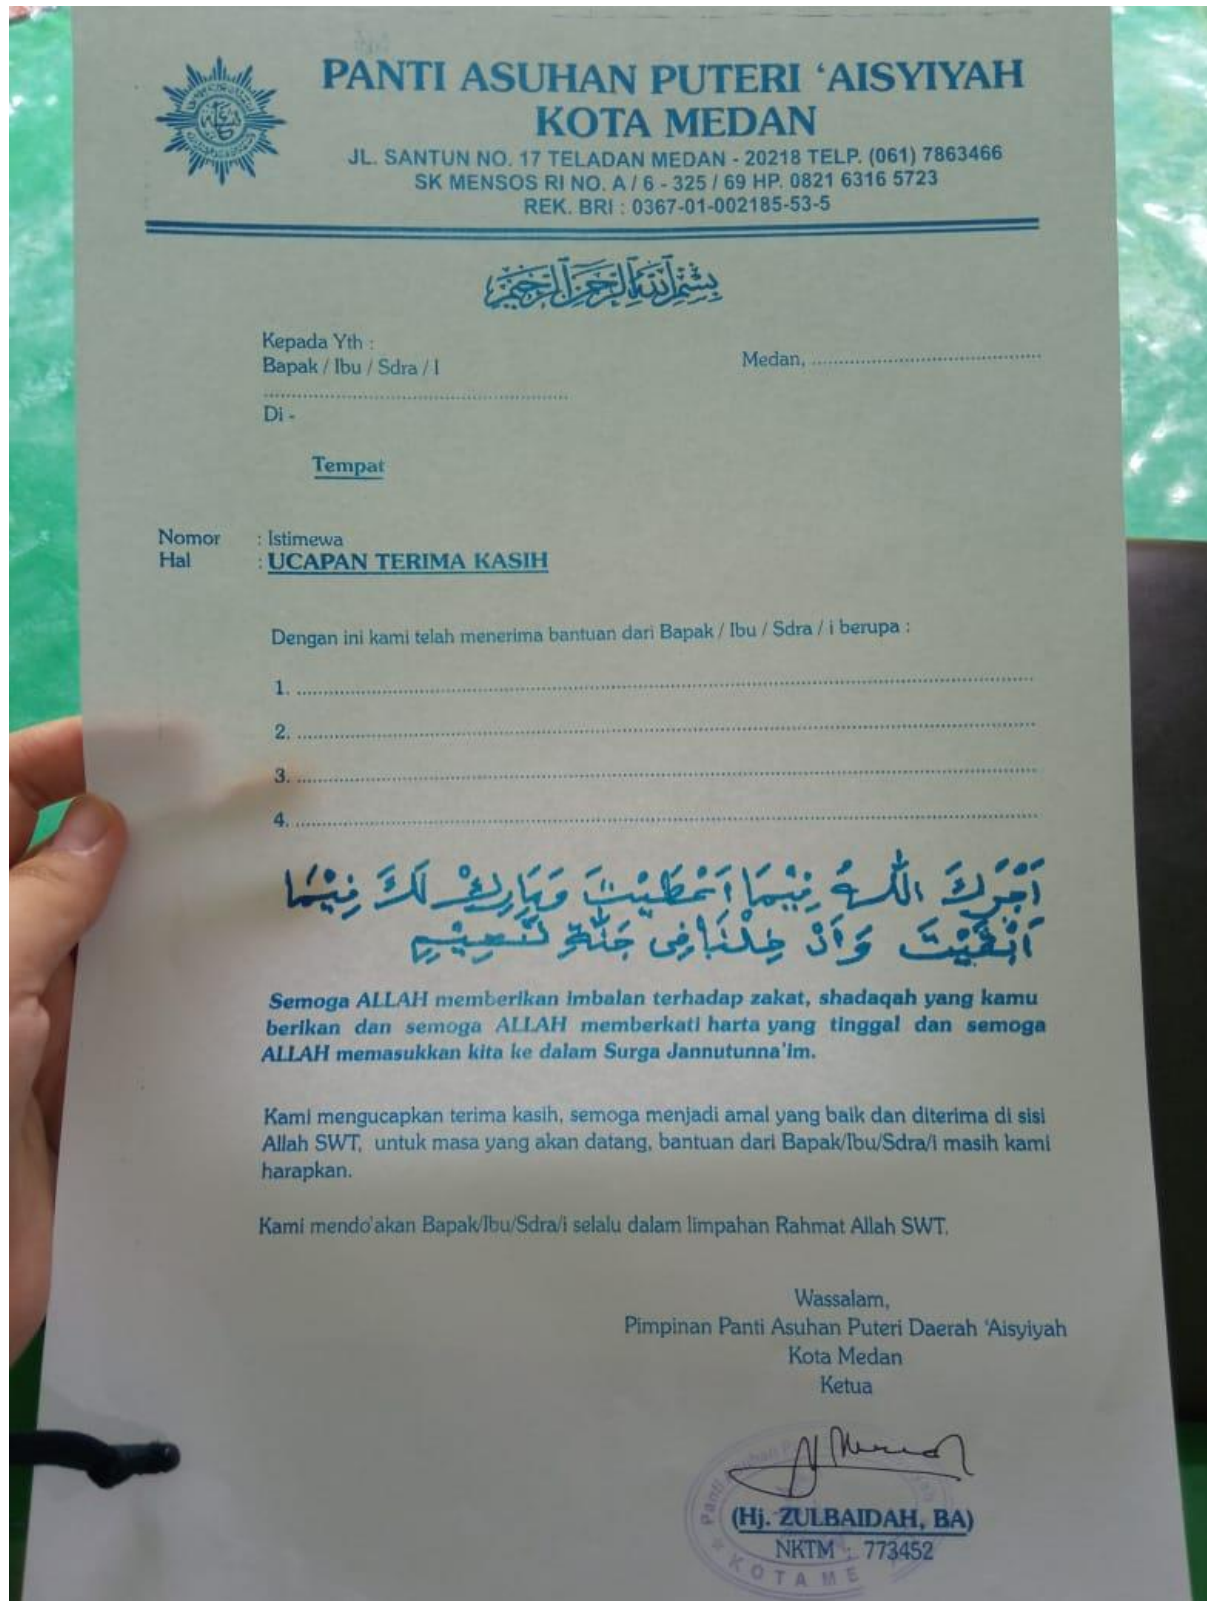 PANTI ASUHAN PUTERI ‘AISYIYAH
KOTA MEDAN
JL. SANTUN NO. 17 TELADAN MEDAN - 20218 TELP. (061) 7863466
SK MENSOS RI NO. A / 6 - 325 / 69 HP. 0821 6316 5723
REK. BRI : 0367-01-002185-53-5
بِسْمِ اللَّهِ الرَّحْمَٰنِ الرَّحِيمِ
Kepada Yth :
Bapak / Ibu / Sdra / I
Medan, ..........................................
......................................................
Di -
Tempat
Nomor : Istimewa
Hal : UCAPAN TERIMA KASIH
Dengan ini kami telah menerima bantuan dari Bapak / Ibu / Sdra / i berupa :
1. ..........................................
2. ..........................................
3. ..........................................
4. ..........................................
اَجَرَكَ اللهُ فِيْمَا اَعْطَيْتَ وَبَارِكْ لَكَ فِيْمَا
اَبْقَيْتَ وَاَدْ خِلْنَا فِى جَنَّةِ لنَّعِيْمِ
Semoga ALLAH memberikan imbalan terhadap zakat, shadaqah yang kamu
berikan dan semoga ALLAH memberkati harta yang tinggal dan semoga
ALLAH memasukkan kita ke dalam Surga Jannutunna'im.
Kami mengucapkan terima kasih, semoga menjadi amal yang baik dan diterima di sisi
Allah SWT, untuk masa yang akan datang, bantuan dari Bapak/Ibu/Sdra/i masih kami
harapkan.
Kami mendo'akan Bapak/Ibu/Sdra/i selalu dalam limpahan Rahmat Allah SWT.
Wassalam,
Pimpinan Panti Asuhan Puteri Daerah ‘Aisyiyah
Kota Medan
Ketua
(Hj. ZULBAIDAH, BA)
NKTM : 773452
KOTA ME